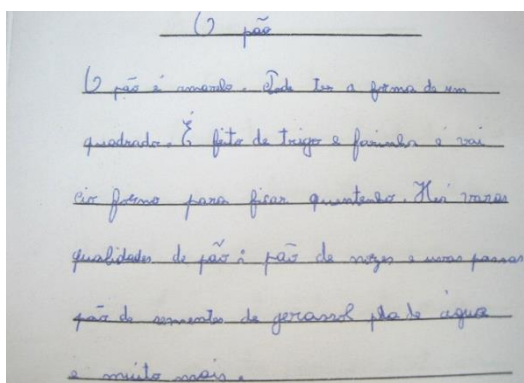 O pão
O pão é amarelo. Pode ter a forma de um
quadrado. É feito de trigo e farinha e vai
ao forno para ficar quentinho. Há varas
qualidades de pão: pão de nozes e uvas passas
pão de sementes de gerassol pão de água
e muito mais.